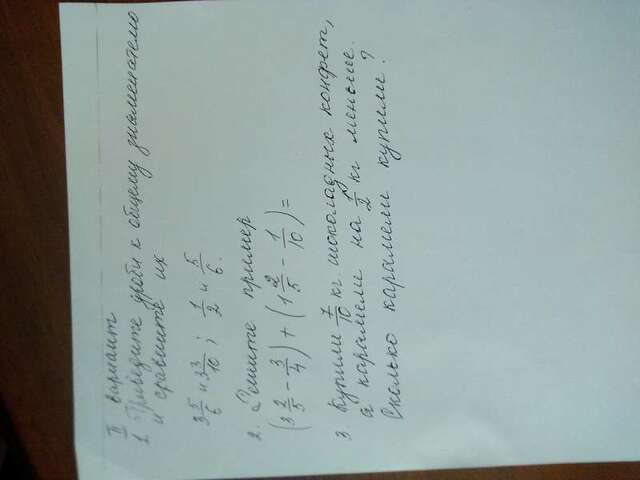 II вариант
1. Приведите дроби к общему знаменателю
и сравните их
3 5/6 и 3 3/10 ; 1/2 и 5/6.
2. Решите пример
(3 2/5 - 3/4) + (1 2/5 - 1/10) =
3. Купили 7/10 кг. шоколадных конфет,
а карамели на 1/2 кг меньше.
Сколько карамели купили?